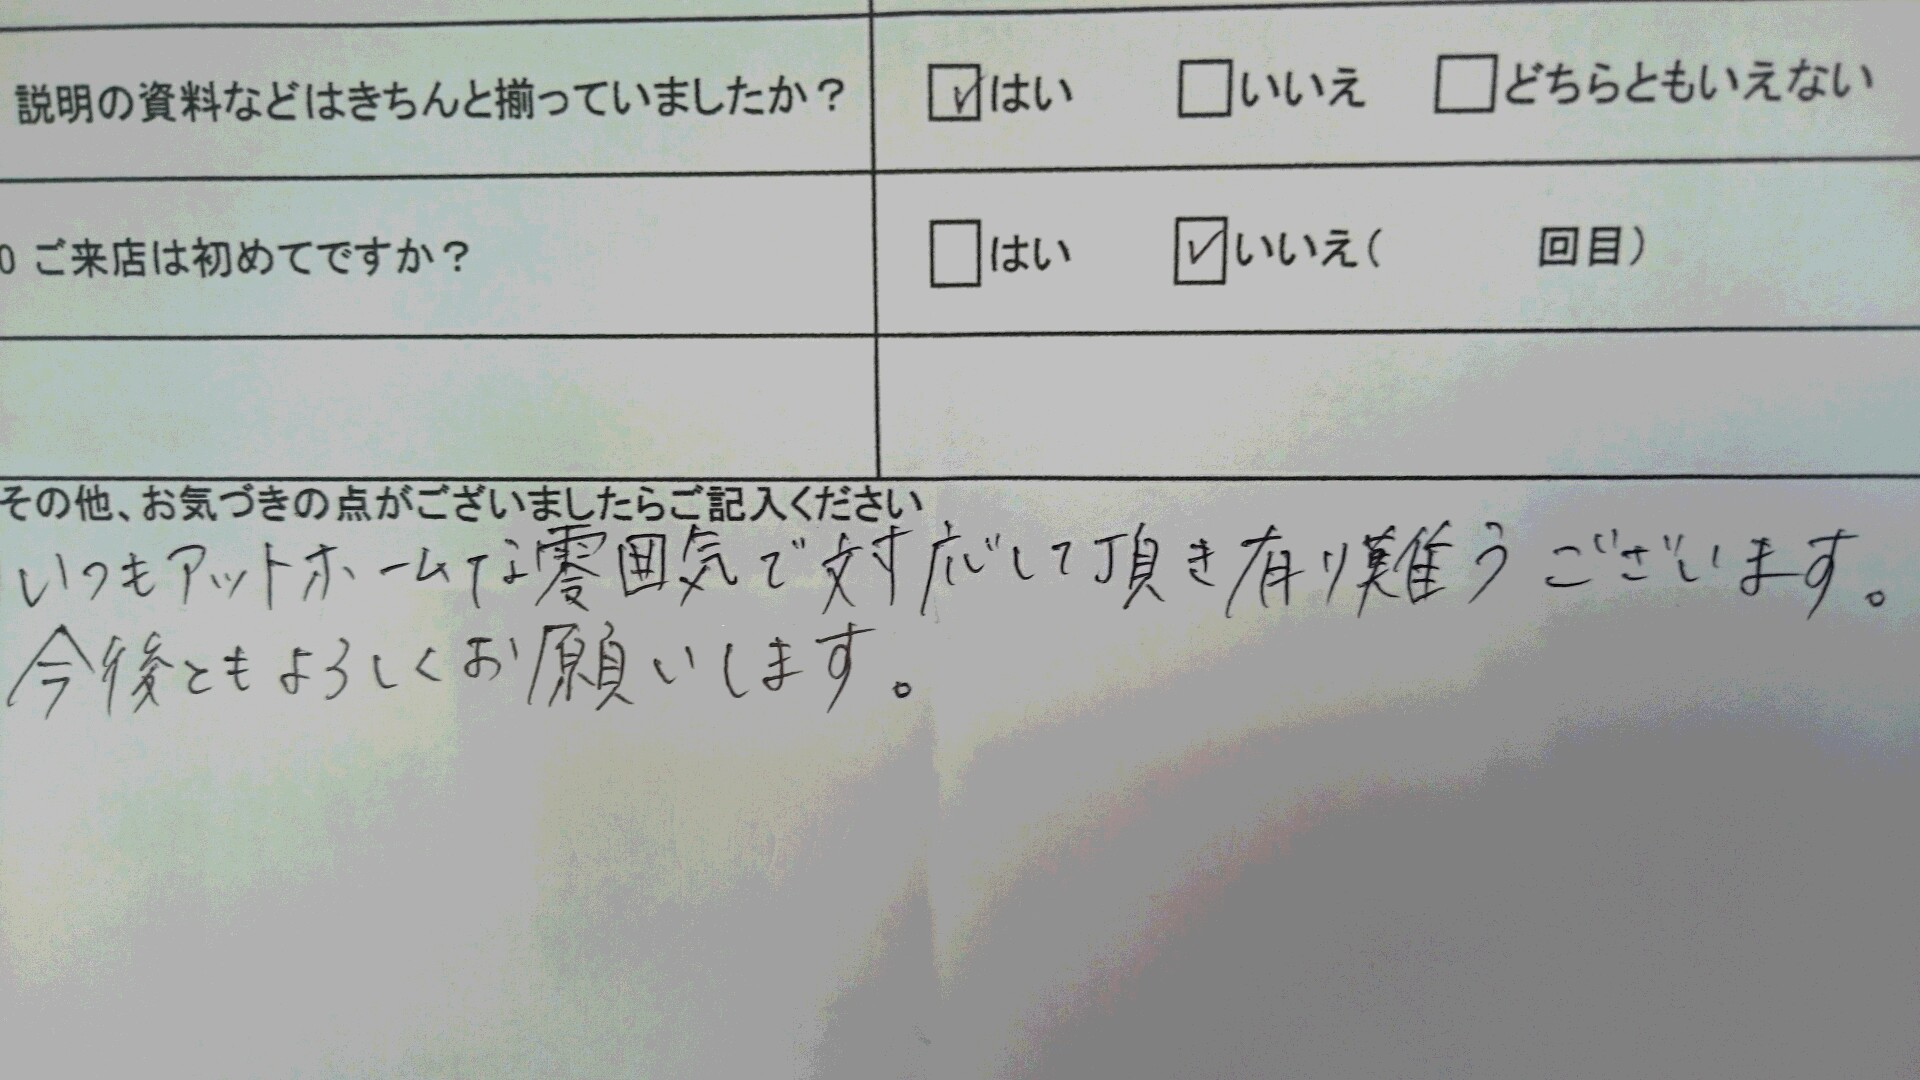 説明の資料などはきちんと揃っていましたか？ はい いいえ どちらともいえない
0 ご来店は初めてですか？ はい いいえ( 回目)
その他、お気づきの点がございましたらご記入ください
いつもアットホームな雰囲気で対応して頂き有り難うございます。
今後ともよろしくお願いします。